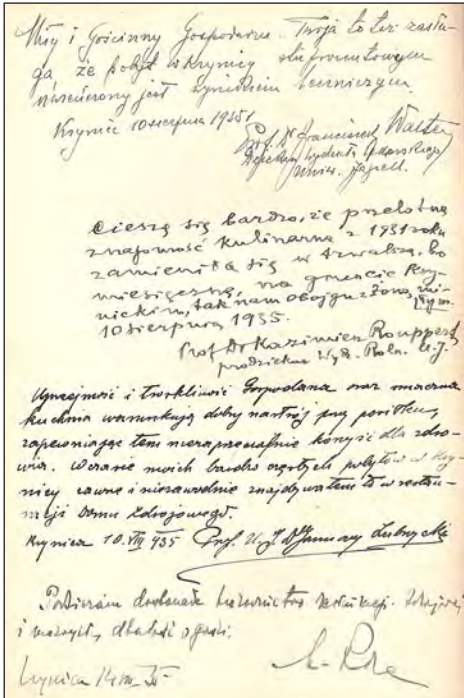 Miły i Gościnny Gospodarzu. Twoja to też zasłu-
ga, że pobyt w Krynicy stuprocentowym
uwieńczony jest wynikiem leczniczym.
Krynica 10 sierpnia 1935 r.
Prof. Dr Franciszek Walter
Dziekan Wydziału Lekarskiego
Uniw. Jagiell.
Cieszę się bardzo, że przelotna
znajomość kulinarna z 1931 roku
zamieniła się w trwalszą, bo
miesięczną, na gruncie kry-
nickim, tak nam obojgu z żoną, miłym.
10 sierpnia 1935.
Prof Dr Kazimierz Rouppert
prodziekan Wydz. Roln. U.J.
Uprzejmość i troskliwość Gospodarza oraz smaczna
kuchnia warunkują dobry nastrój przy posiłku,
zapewniając tem niezaprzeczalnie korzyść dla zdro-
wia. W czasie moich bardzo częstych pobytów w Kry-
nicy zawsze i niezawodnie znajdywałem to w restau-
racji Domu Zdrojowego.
Krynica 10.VIII 935 Prof. U.J. Dr January Zubrzycki
Podziwiam doskonałe kierownictwo restauracji Zdrojowej
i dbałość o gości.
Krynica 14 VIII 35